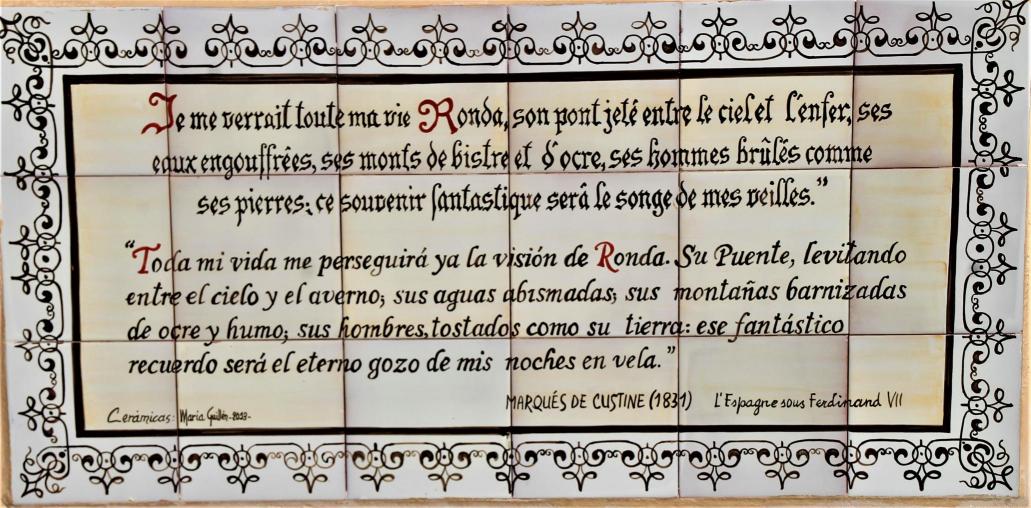 Je me verrait toute ma vie Ronda, son pont jeté entre le ciel et l'enfer, ses
eaux engouffrées, ses monts de bistre et d'ocre, ses hommes brûlés comme
ses pierres; ce souvenir fantastique será le songe de mes veilles."
"Toda mi vida me perseguirá ya la visión de Ronda. Su Puente, levitando
entre el cielo y el averno; sus aguas abismadas; sus montañas barnizadas
de ocre y humo; sus hombres, tostados como su tierra: ese fantástico
recuerdo será el eterno gozo de mis noches en vela."
MARQUÉS DE CUSTINE (1831) L'Espagne sous Ferdinand VII
Cerámicas: María Guillén